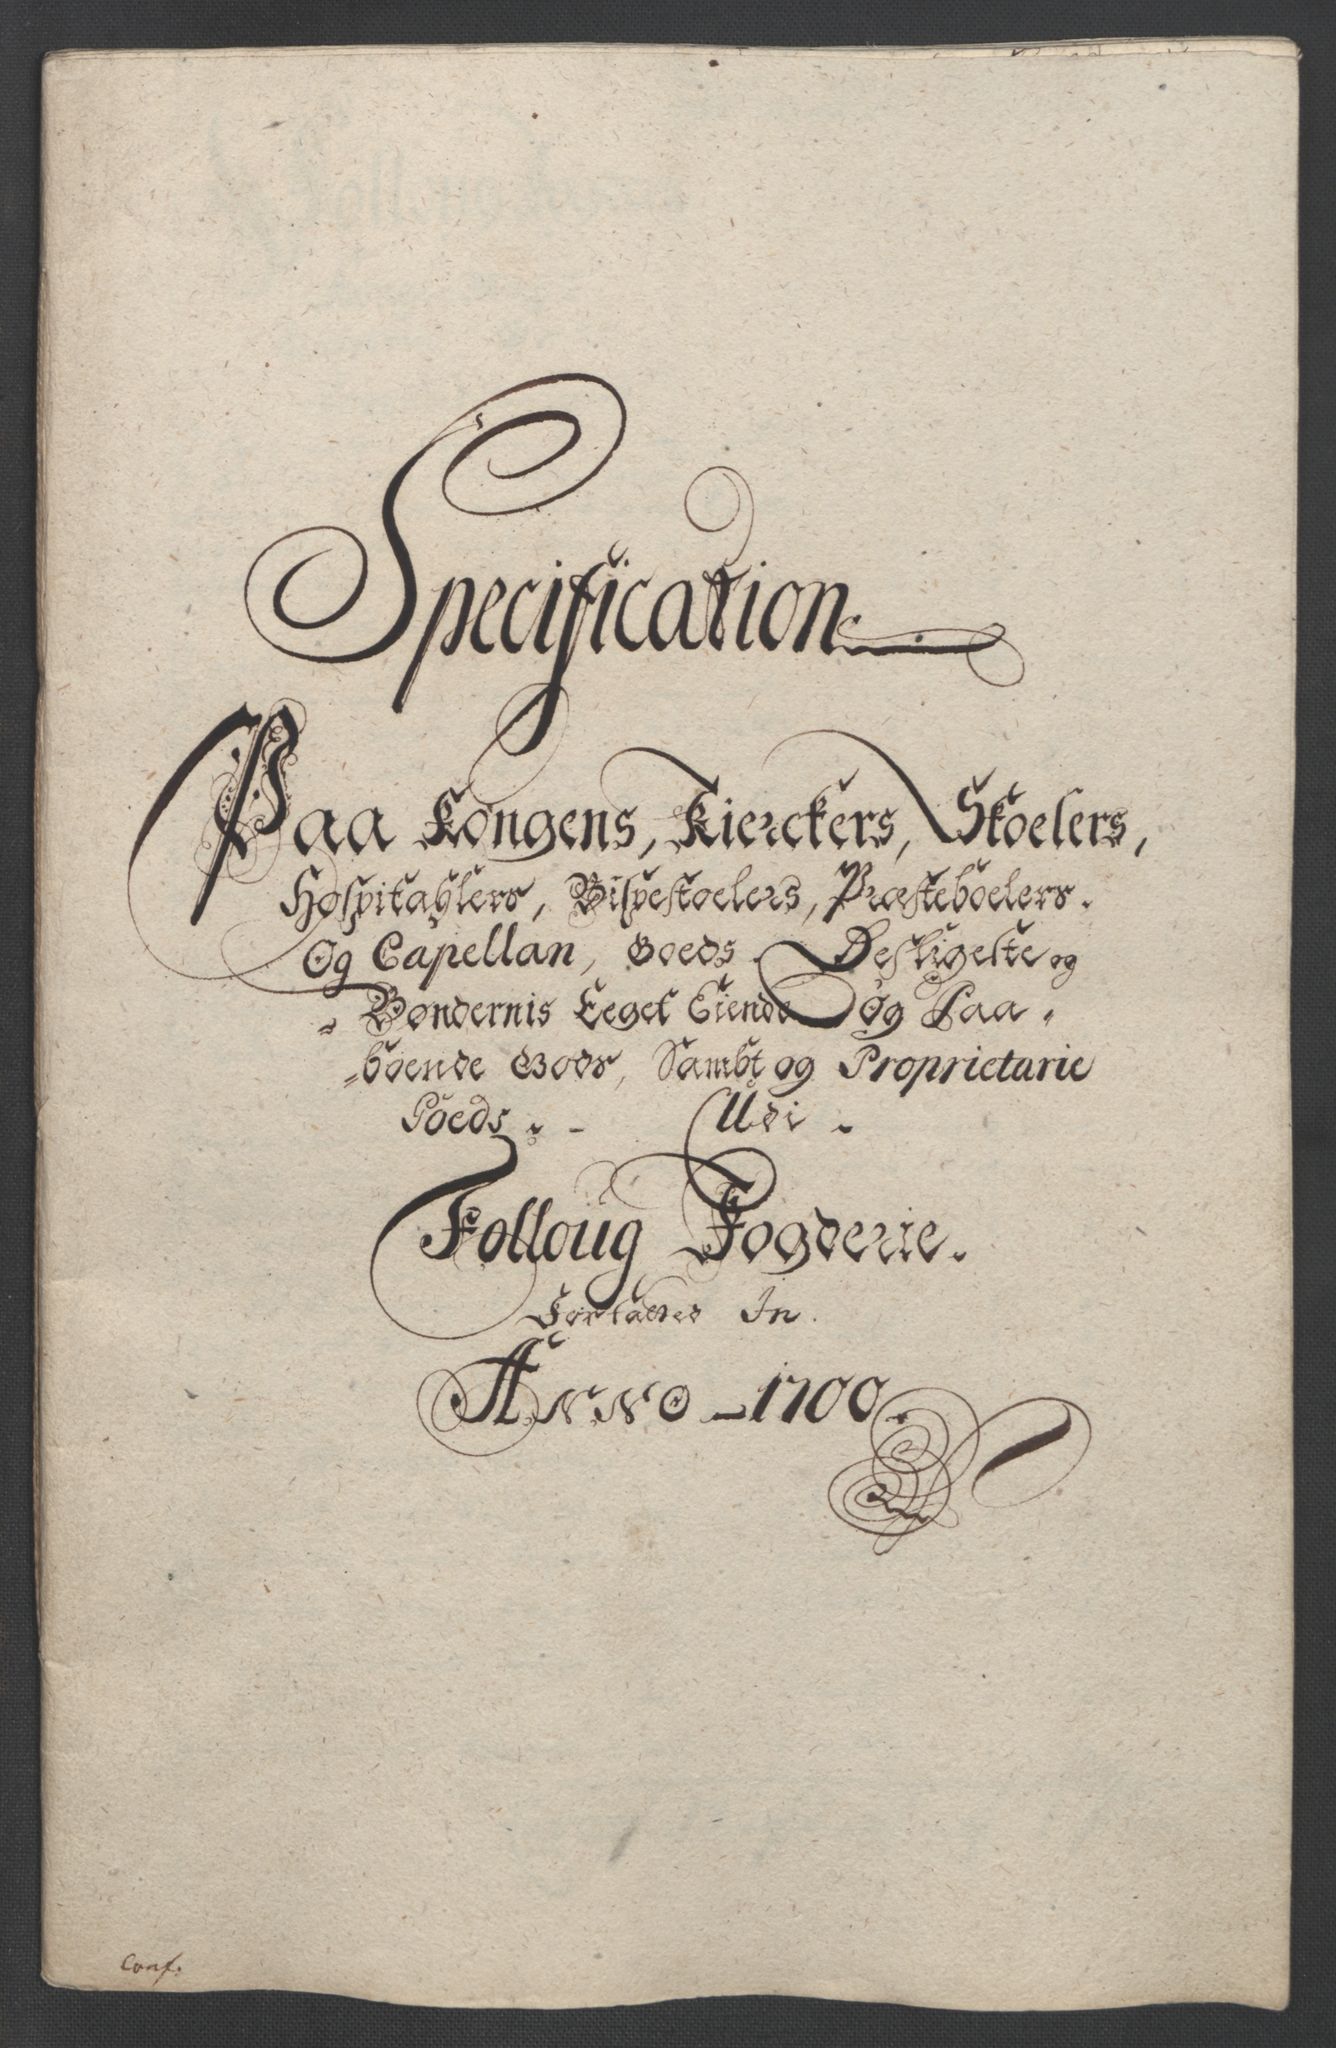 Specification
Paa Kongens, Kierckers, Skoelers,
Hospitahlers, Bispestoelers, Præsteboelers.
Og Capellan, Goeds. Desligeste og
Bøndernis Eeget Eiende og Paa
boende Gods, Sambt og Proprietarie
Goeds. - Udi.
Folloug Fogderie.
In.
Anno - 1700.
Conf.